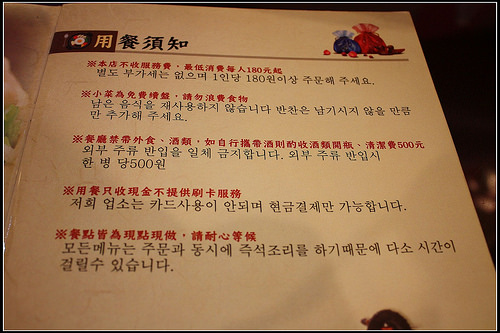 用餐須知
※本店不收服務費，最低消費每人180元起
별도 부가세는 없으며 1인당 180원이상 주문해 주세요.
※小菜為免費續盤，請勿浪費食物
남은 음식을 재사용하지 않습니다 반찬은 남기시지 않을 만큼
만 추가해 주세요.
※餐廳禁帶外食、酒類，如自行攜帶酒則酌收酒類開瓶、清潔費500元
외부 주류 반입을 일체 금지합니다. 외부 주류 반입시
한 병 당500원
※用餐只收現金不提供刷卡服務
저희 업소는 카드사용이 안되며 현금결제만 가능합니다.
※餐點皆為現點現做，請耐心等候
모든메뉴는 주문과 동시에 즉석조리를 하기때문에 다소 시간이
걸릴수 있습니다.